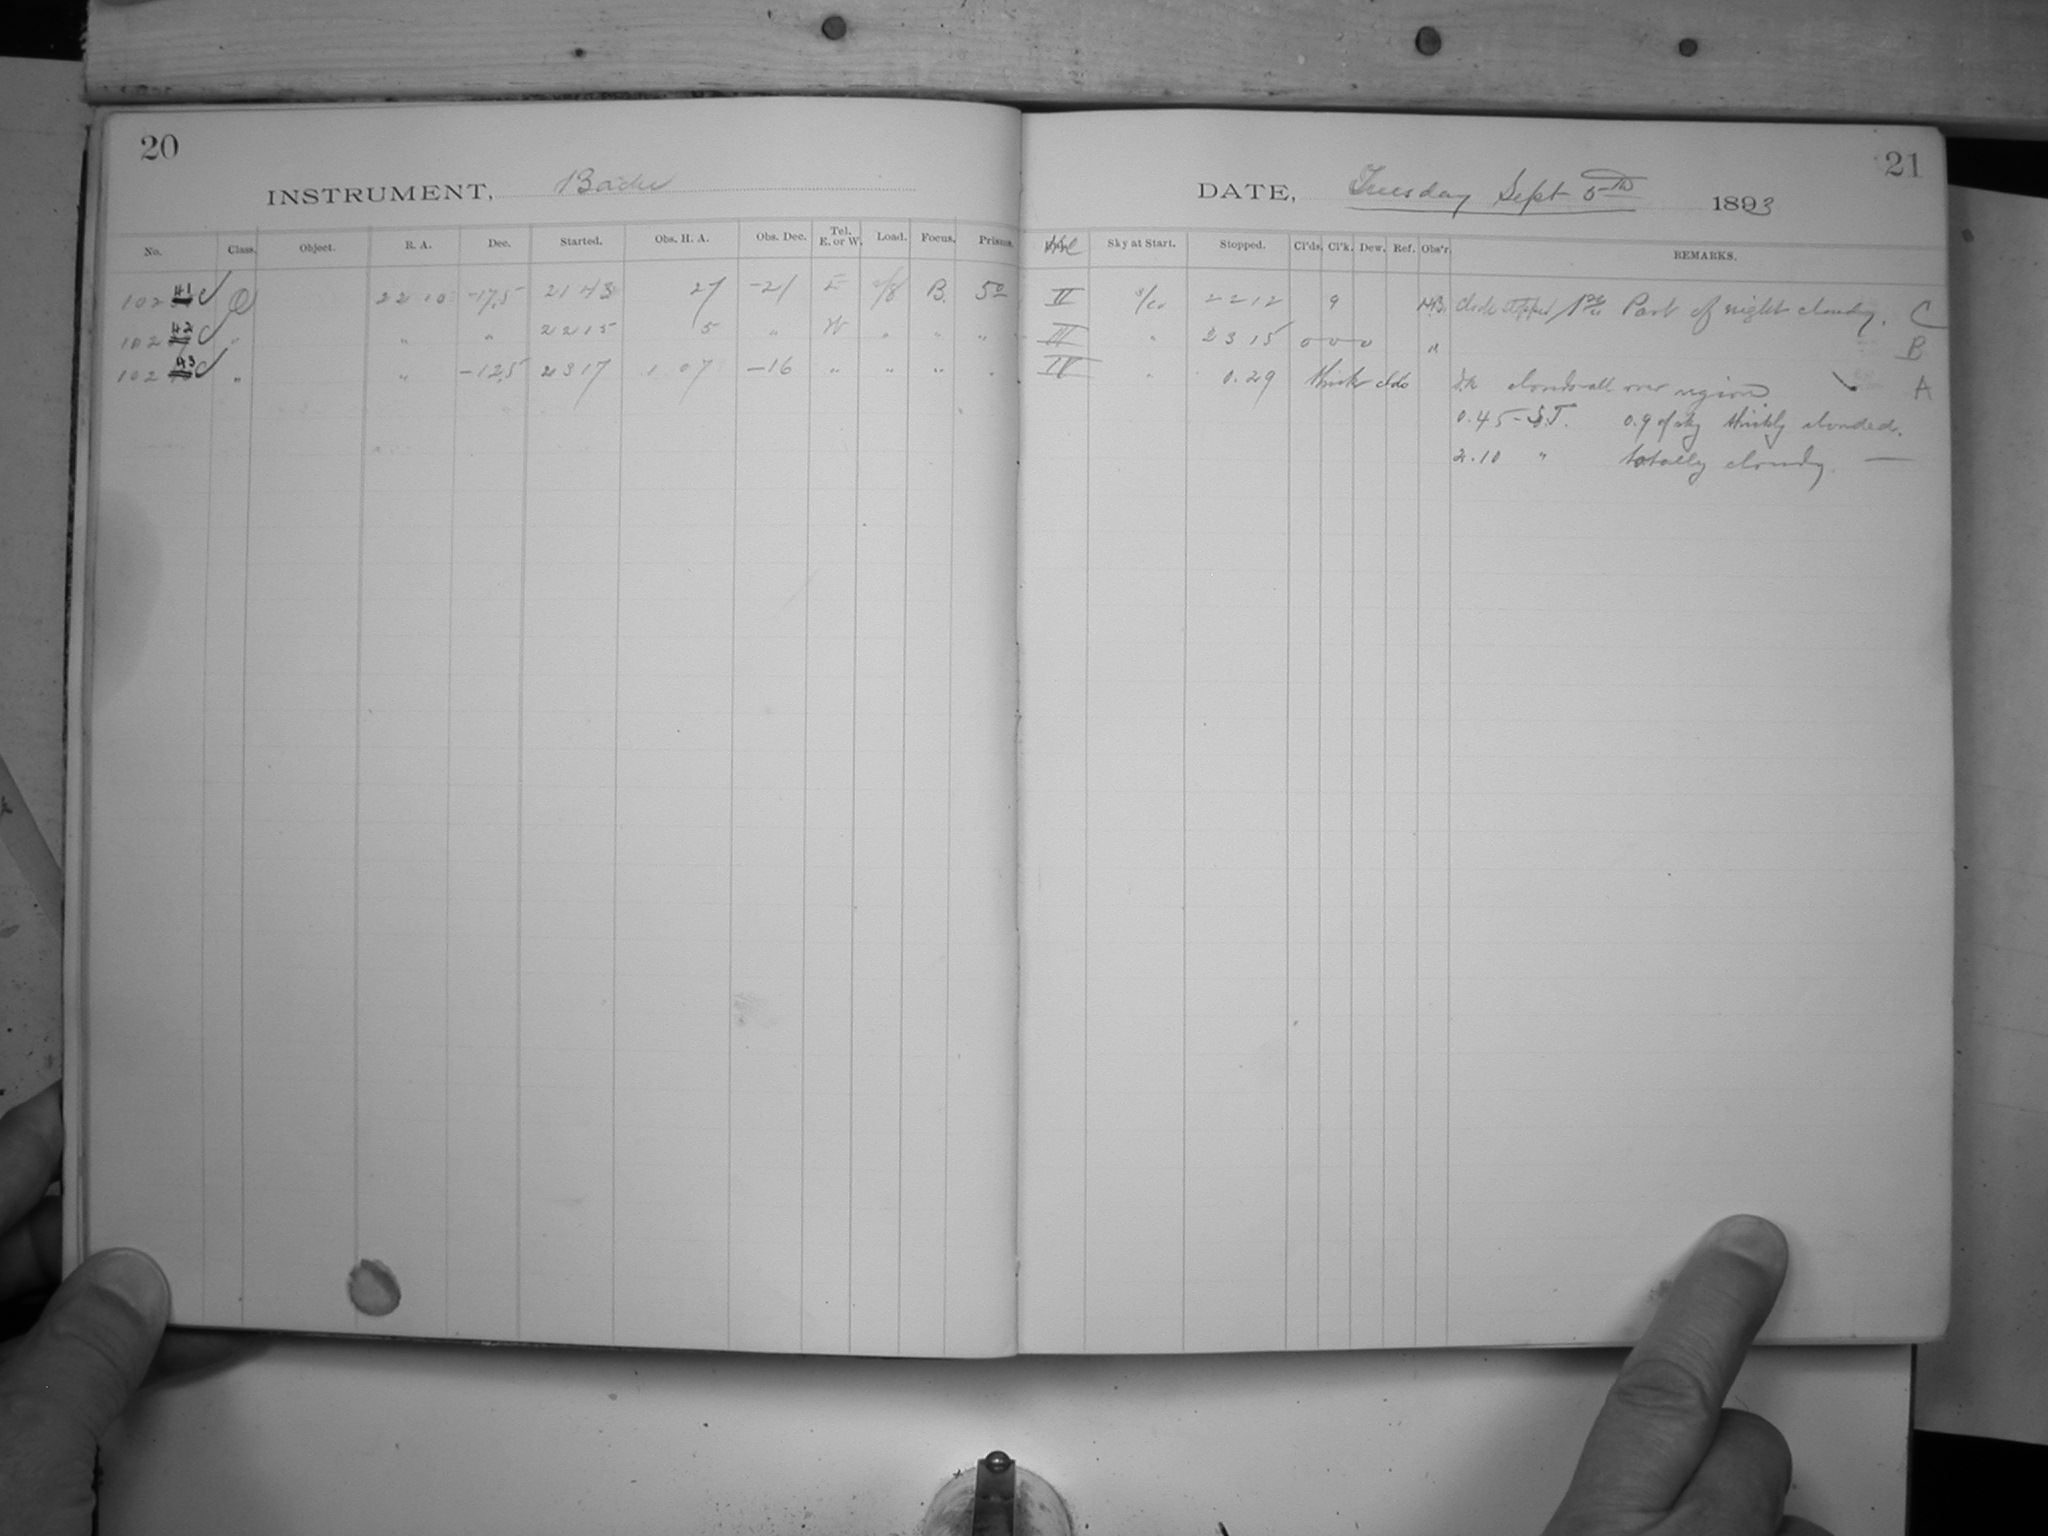 20
INSTRUMENT, Bache
No. Class. Object. R. A. Dec. Started. Obs. H. A. Obs. Dec. Tel. E. or W. Load. Focus. Prisms.
102 41 22 10 -17.5 21 43 27 -21 E B. 50
102 42 " " " 22 15 5 " W " " "
102 43 " " -12.5 23 17 1 07 -16 " " " "
21
DATE, Tuesday Sept 5th 1893
Sky at Start. Stopped. Cl'ds. Cl'k. Dew. Ref. Obs'r. REMARKS.
II 22 12 9 Clock stopped Part of night cloudy. C
III " 23 15 0 0 0 " B
IV " 0.29 thick clds clouds all over region A
0.45 - S.T. 0.9 of sky thickly clouded.
2.10 " totally cloudy. —